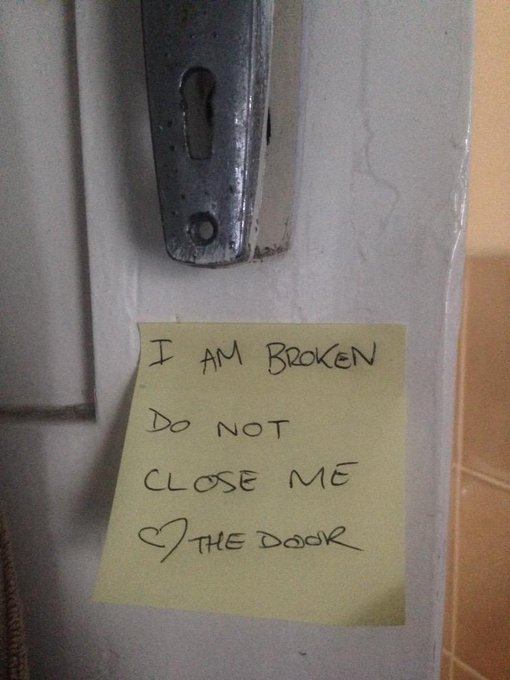 I AM BROKEN
DO NOT
CLOSE ME
♡ THE DOOR